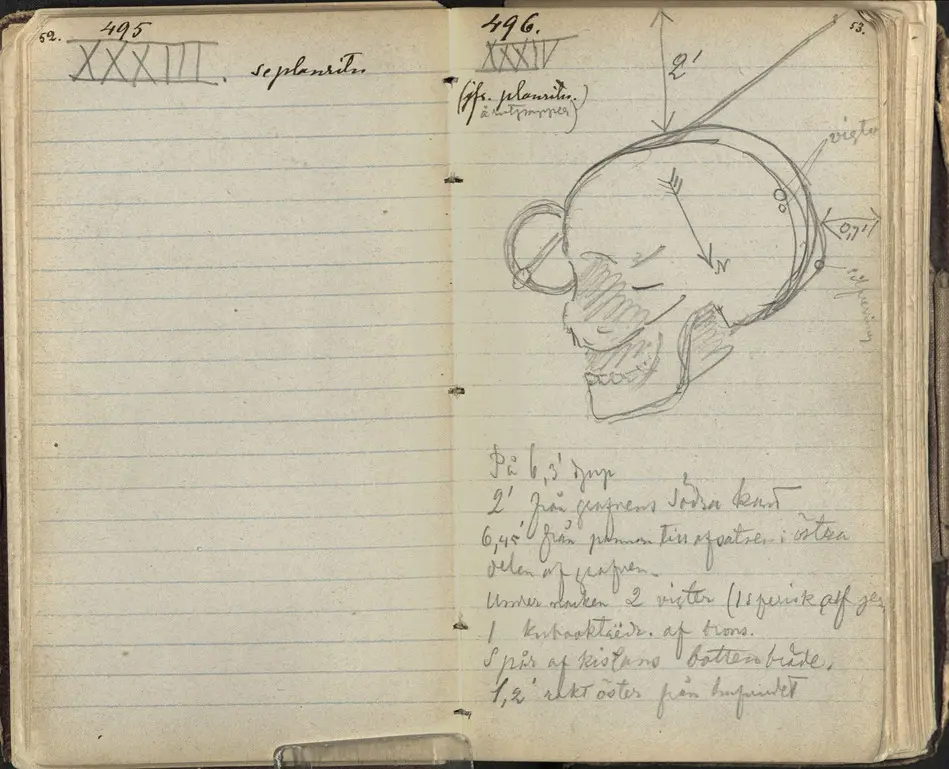 52.
495
XXXIII.
se planritn
496.
53.
XXXIV
(jfr. planritn.
2'
vigter
0,71'
N
På 6,3' djup
2' från grafvens södra kant
6,45' från pannan till afsatsen i östra
delen af grafven.
Under nacken 2 vigter (1 sferisk af
1 kubooktaëdr. af brons.
Spår af kistans bottenbräde.
1,2' rakt öster från hufvudet